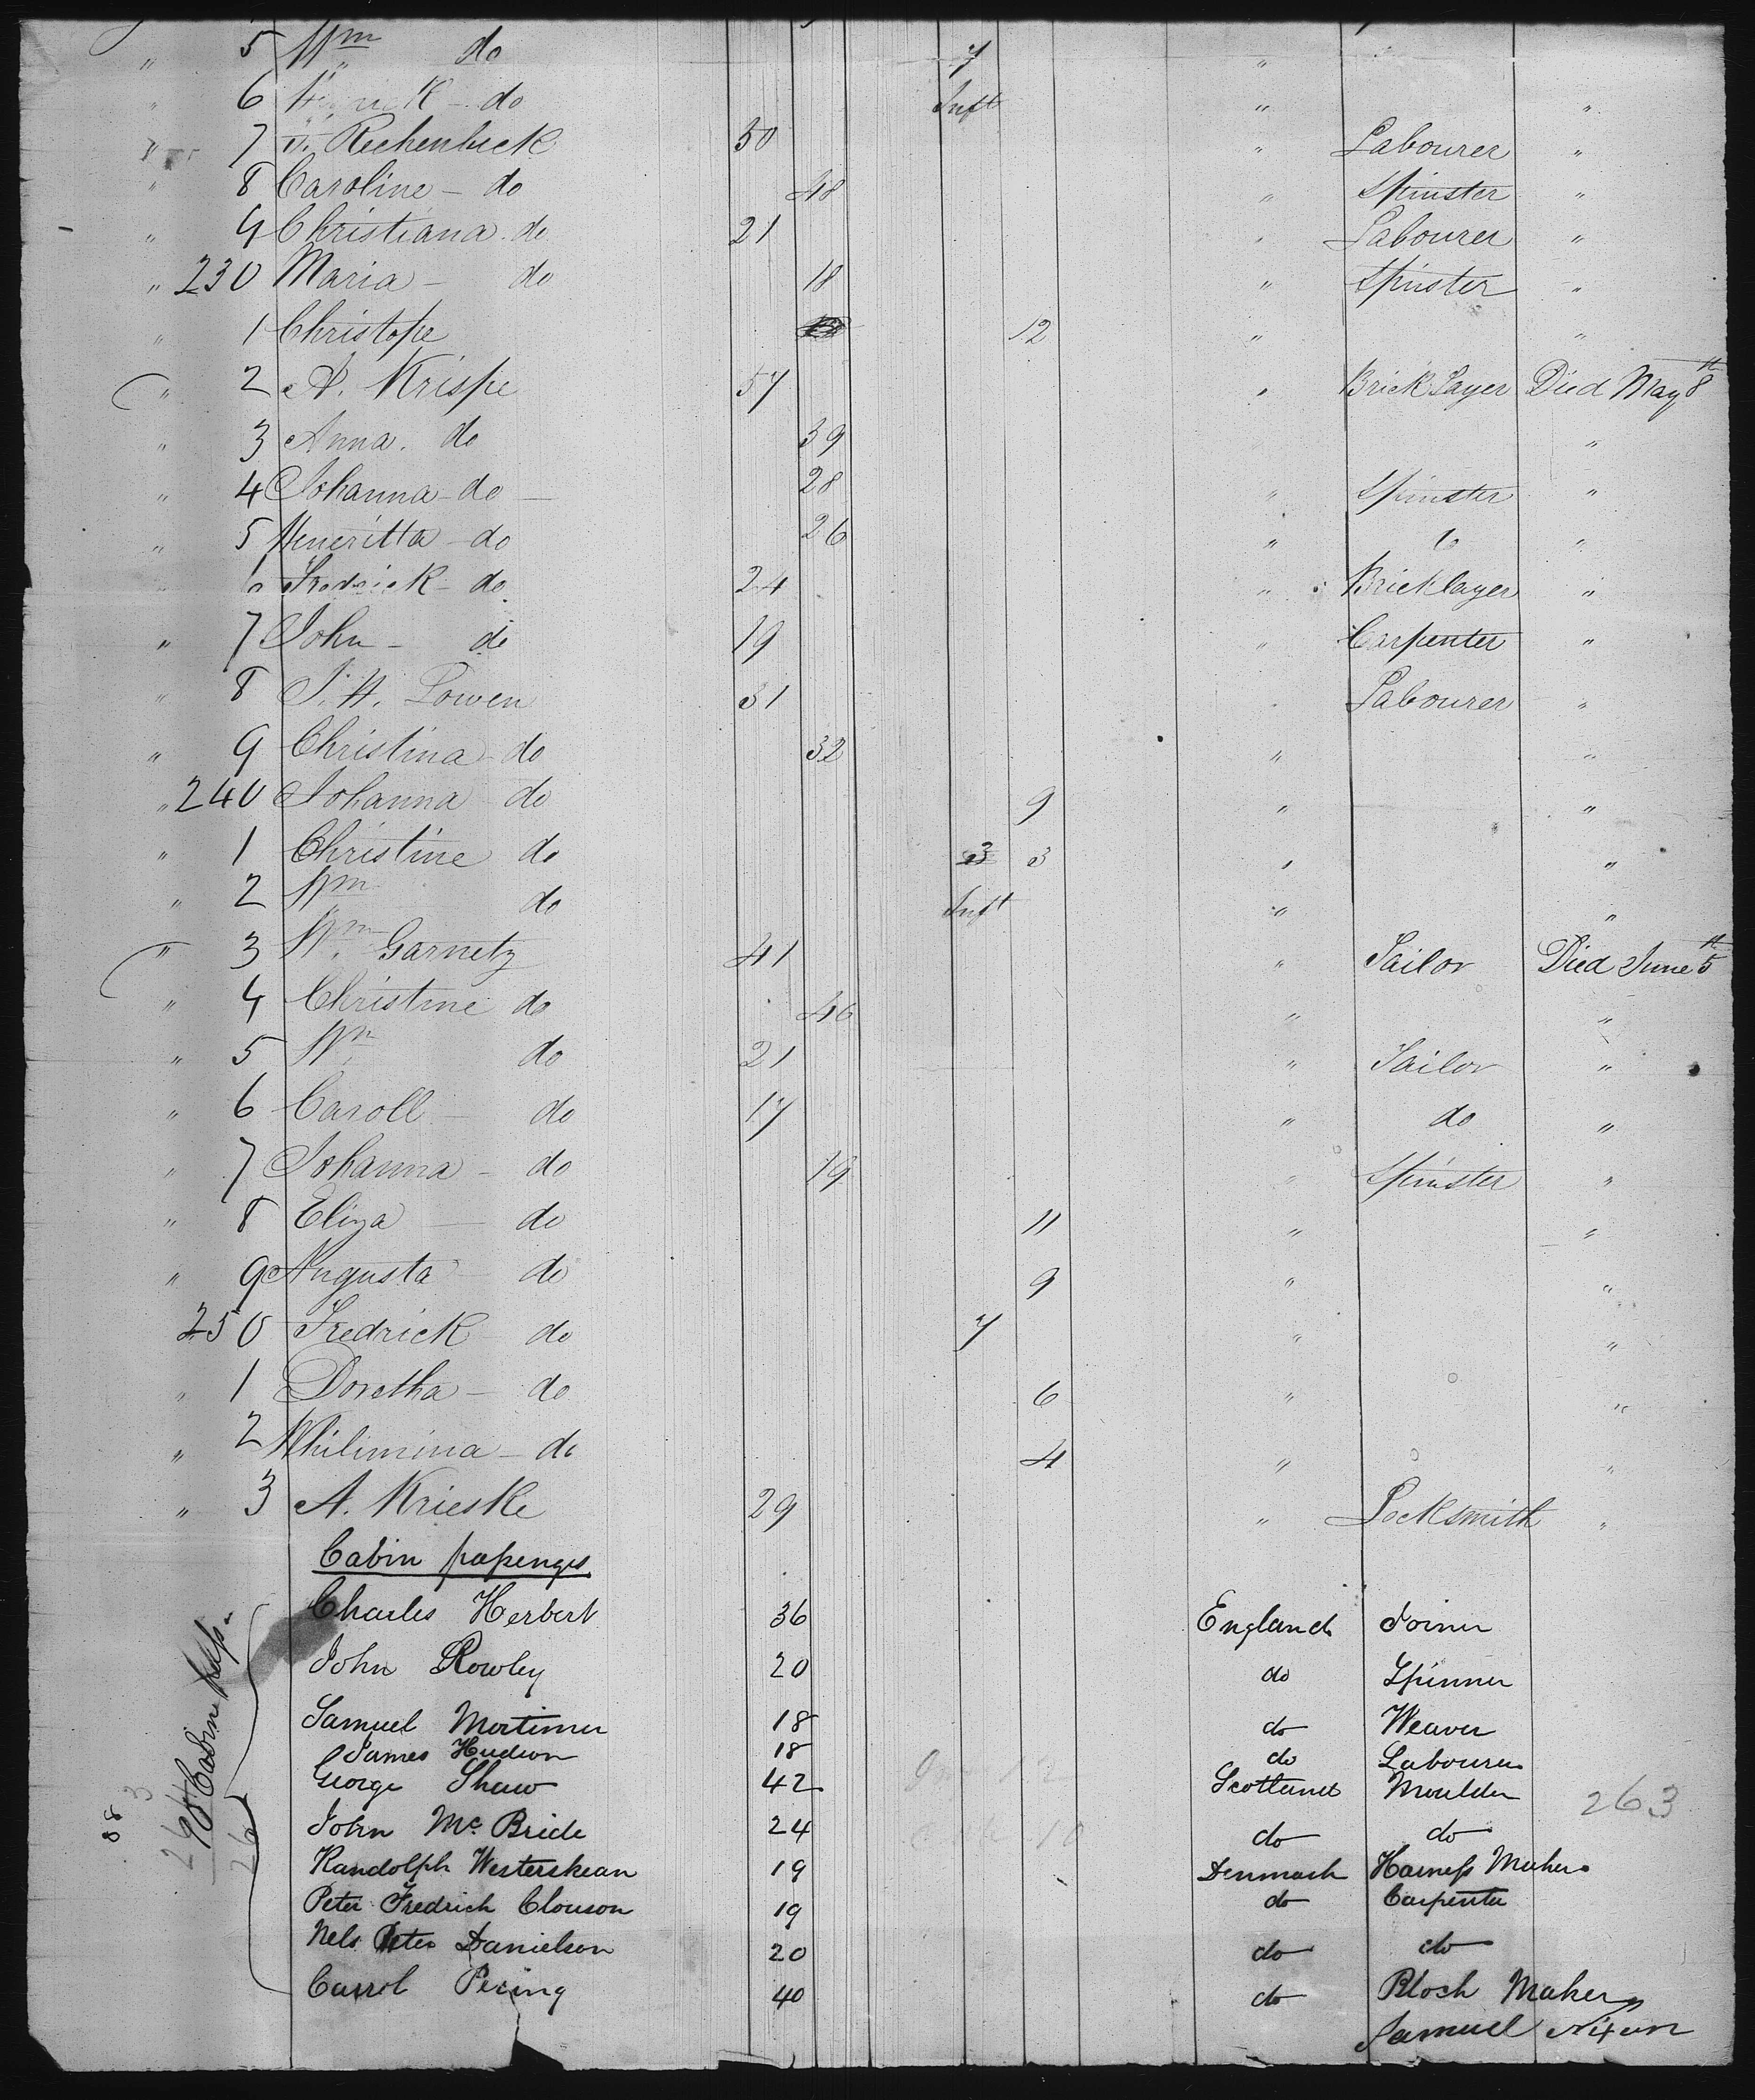 " 5 Wm do 7 "
" 6 do Inft " "
" 7 Rechenbeck 50 " Labourer "
" 8 Caroline - do 48 " Spinster "
" 9 Christiana do 21 " Labourer "
" 230 Maria - do 18 " Spinster "
" 1 Christope 12 " "
" 2 A. Krispe 57 " Brick Layer Died May 8th
" 3 Anna. do 39 "
" 4 Johanna - do - 28 " Spinster "
" 5 Heneritta - do 26 " "
" 6 Fredrick - do 24 " Bricklayer "
" 7 John - do 19 " Carpenter "
" 8 J. H. Lowen 31 Labourer "
" 9 Christina - do 32 " "
" 240 Johanna - do 9 " "
" 1 Christine do 3 3 " "
" 2 Wm do Inft " "
" 3 Wm Garnetz 41 " Tailor Died June 5th
" 4 Christine do 46 " "
" 5 Wm do 21 " Tailor "
" 6 Caroll - do 17 " do "
" 7 Johanna - do 19 " Spinster "
" 8 Eliza - do 11 " "
" 9 Augusta - do 9 " "
250 Fredrick - do 7 " "
" 1 Doretha - do 6 " "
" 2 Whilimina - do 4 " "
" 3 A. Krieske 29 " Locksmith "
Cabin passenges
Charles Herbert 36 England Joiner
John Rowley 20 do Spinner
Samuel Mortimer 18 do Weaver
James Hudson 18 do Labourer
George Shaw 42 Scotland Moulder
263
John Mc Bride 24 do do
Randolph Westerskean 19 Denmark Harness Maker
Peter Fredrich Clouson 19 do Carpenter
Nels Peter Danielson 20 do do
Carrol Pering 40 do Block Maker
Samuel Nixon
10 Cabin pass.
88
3